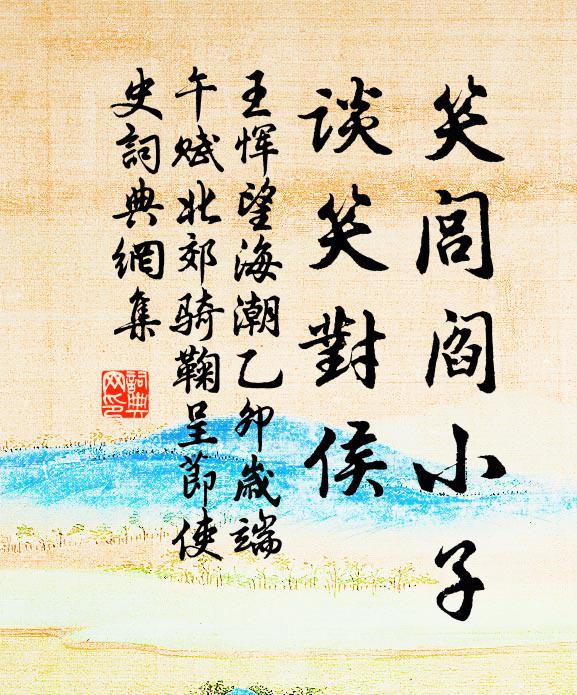 笑閭閻小子
談笑對侯
王惲望海潮乙卯歲端
午賦北郊騎鞠呈節使
史詞典網集
詞典
网印